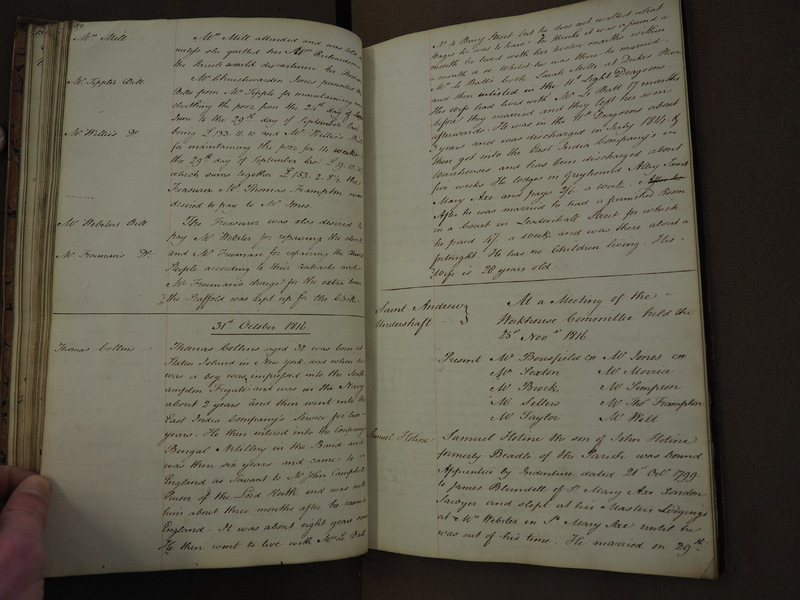 Mrs Mill
Mrs Mill attended and was told
unless she quitted her Mrs Richardson
the Parish would discontinue her
Mr Tipple's Bill
Mr Churchwarden Jones presented the
Bills from Mr Tipple for maintaining and
cloathing the poor from the 24th day of
June to the 29th day of September last
Mr Willis's Do
being £133. 4. 10 and Mr Willis's Bill
for maintaining the poor for 14 weeks to
the 29th day of September last £19.
which sums together £153. 2. 8½ the
Treasurer Mr Thomas Frampton was
desired to pay to Mr Jones.
Mr Websters Bill
The Treasurer was also desired to
pay Mr Webster for repairing the clock
Mr Freeman's Do
and Mr Freeman for repairing the Church
Steeple according to their contracts and
Mr Freeman's charge for the extra time
the Scaffold was kept up for the Clock.
31st October 1816.
Thomas Collins
Thomas Collins aged 32 was born at
Staten Island in New York and when he
was a boy was impressed into the South
ampton Frigate and was in the Navy
about 2 years and then went into the
East India Company's Service for two
years. He then entered into the Company's
Bengal Artillery in the Band and
was there six years and came to
England as Servant to Mr John Campbell
Purser of the Lord Keith and was with
him about three months after he came to
England. It was about eight years since
He then went to live with Mr Le Batt
No 4 Bury Street but he does not recollect what
Wages he was to have he thinks it was a pound a
month he lived with her twelve months within
a month or so Whilst he was there he married
Mr Le Batt's Cook Sarah Miller at Dukes Place
and then enlisted in the 11th Light Dragoons
His wife had lived with Mr Le Batt 17 months
before they married and they left her soon
afterwards. He was in the 11th Dragoons about
3 years and was discharged in July 1814. &
then got into the East India Company's
Warehouses and has been discharged about
five weeks He lodges in Greyhound Alley Saint
Mary Axe and pays 2/6 a week.
After he was married he had a furnished Room
in a Court in Leadenhall Street for which
he paid 4/ a Week and was there about a
fortnight. He has no Children living. His
Wife is 28 years old.
Saint Andrew
Undershaft
At a Meeting of the
Workhouse Committee held the
25th Novr 1816
Present Mr Bousfield cw Mr Jones cw
Mr Sexton Mr Morris
Mr Brock Mr Simpson
Mr Sellers Mr Thos Frampton
Mr Taylor Mr Witt
Samuel Heline
Samuel Heline the son of John Heline
formerly Beadle of the Parish was bound
Apprentice by Indenture dated 21st Octr 1799
to James Blundell of St Mary Axe London
Sawyer and slept at his Masters Lodgings
at Mr Webster in St Mary Axe until he
was out of his time. He married on 29th